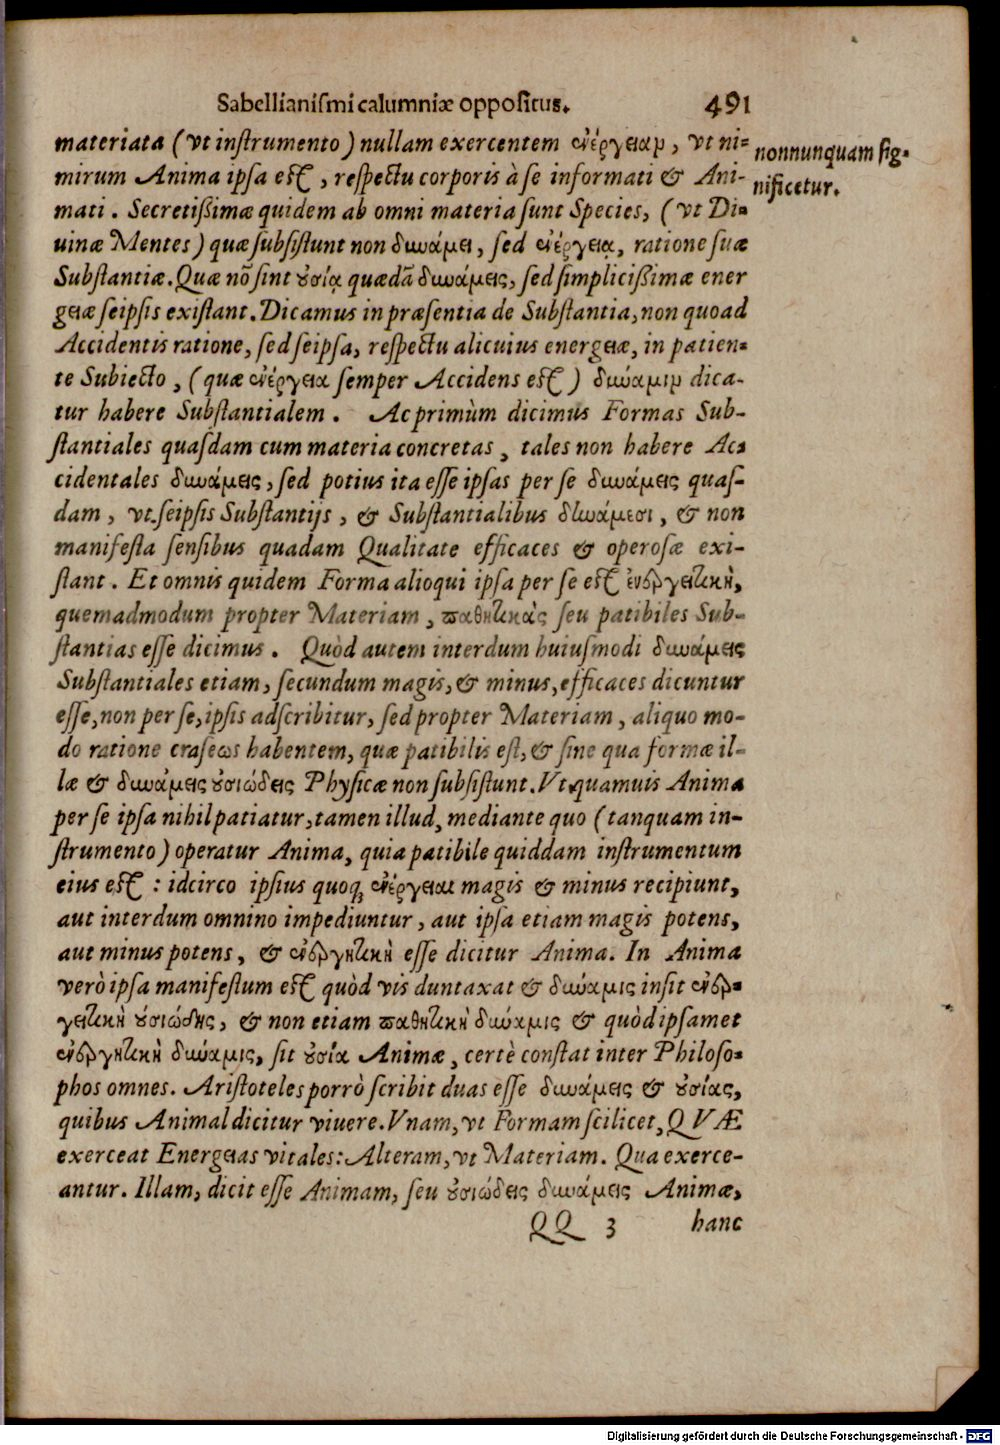 Sabellianiſmi calumniæ oppoſitus. 491
materiata (vt inſtrumento) nullam exercentem ἐνέργειαν, vt ni-
mirum Anima ipſa eſt, reſpectu corporis à ſe informati & Ani-
mati. Secretißimæ quidem ab omni materia ſunt Species, (vt Di-
uinæ Mentes) quæ ſubſiſtunt non δυνάμει, ſed ἐνέργειᾳ, ratione ſuæ
Subſtantiæ. Quæ nõ ſint οὐσίᾳ quædã δυνάμεις, ſed ſimplicißimæ ener
geιæ ſeipſis exiſtant. Dicamus in præſentia de Subſtantia, non quoad
Accidentis ratione, ſed ſeipſa, reſpectu alicuius energeιæ, in patien-
te Subiecto, (quæ ἐνέργεια ſemper Accidens eſt) δύναμιν dica-
tur habere Subſtantialem. Ac primùm dicimus Formas Sub-
ſtantiales quaſdam cum materia concretas, tales non habere Ac-
cidentales δυνάμεις, ſed potius ita eſſe ipſas per ſe δυνάμεις quaſ-
dam, vt ſeipſis Subſtantijs, & Subſtantialibus δυνάμεσι, & non
manifeſta ſenſibus quadam Qualitate efficaces & operoſæ exi-
ſtant. Et omnis quidem Forma alioqui ipſa per ſe eſt ἐνεργειτικὴ,
quemadmodum propter Materiam, παθητικὰς ſeu patibiles Sub-
ſtantias eſſe dicimus. Quòd autem interdum huiuſmodi δυνάμεις
Subſtantiales etiam, ſecundum magis, & minus, efficaces dicuntur
eſſe, non per ſe, ipſis adſcribitur, ſed propter Materiam, aliquo mo-
do ratione craſeως habentem, quæ patibilis eſt, & ſine qua formæ il-
læ & δυνάμεις οὐσιώδεις Phyſicæ non ſubſiſtunt. Vt quamuis Anima
per ſe ipſa nihil patiatur, tamen illud, mediante quo (tanquam in-
ſtrumento) operatur Anima, quia patibile quiddam inſtrumentum
eius eſt: idcirco ipſius quoq; ἐνέργειαι magis & minus recipiunt,
aut interdum omnino impediuntur, aut ipſa etiam magis potens,
aut minus potens, & ἐνεργητικὴ eſſe dicitur Anima. In Anima
verò ipſa manifeſtum eſt quòd vis duntaxat & δύναμις inſit ἐνερ-
γειτικὴ οὐσιώδης, & non etiam παθητικὴ δύναμις & quòd ipſamet
ἐνεργητικὴ δύναμις, ſit οὐσία Animæ, certè conſtat inter Philoſo-
phos omnes. Ariſtoteles porrò ſcribit duas eſſe δυνάμεις & οὐσίας,
quibus Animal dicitur viuere. Vnam, vt Formam ſcilicet, QVÆ
exerceat Energeιas vitales: Alteram, vt Materiam. Qua exerce-
antur. Illam, dicit eſſe Animam, ſeu οὐσιώδεις δυνάμεις Animæ,
QQ 3 hanc
nonnunquam ſig-
nificetur.
Digitalisierung gefördert durch die Deutsche Forschungsgemeinschaft - DFG